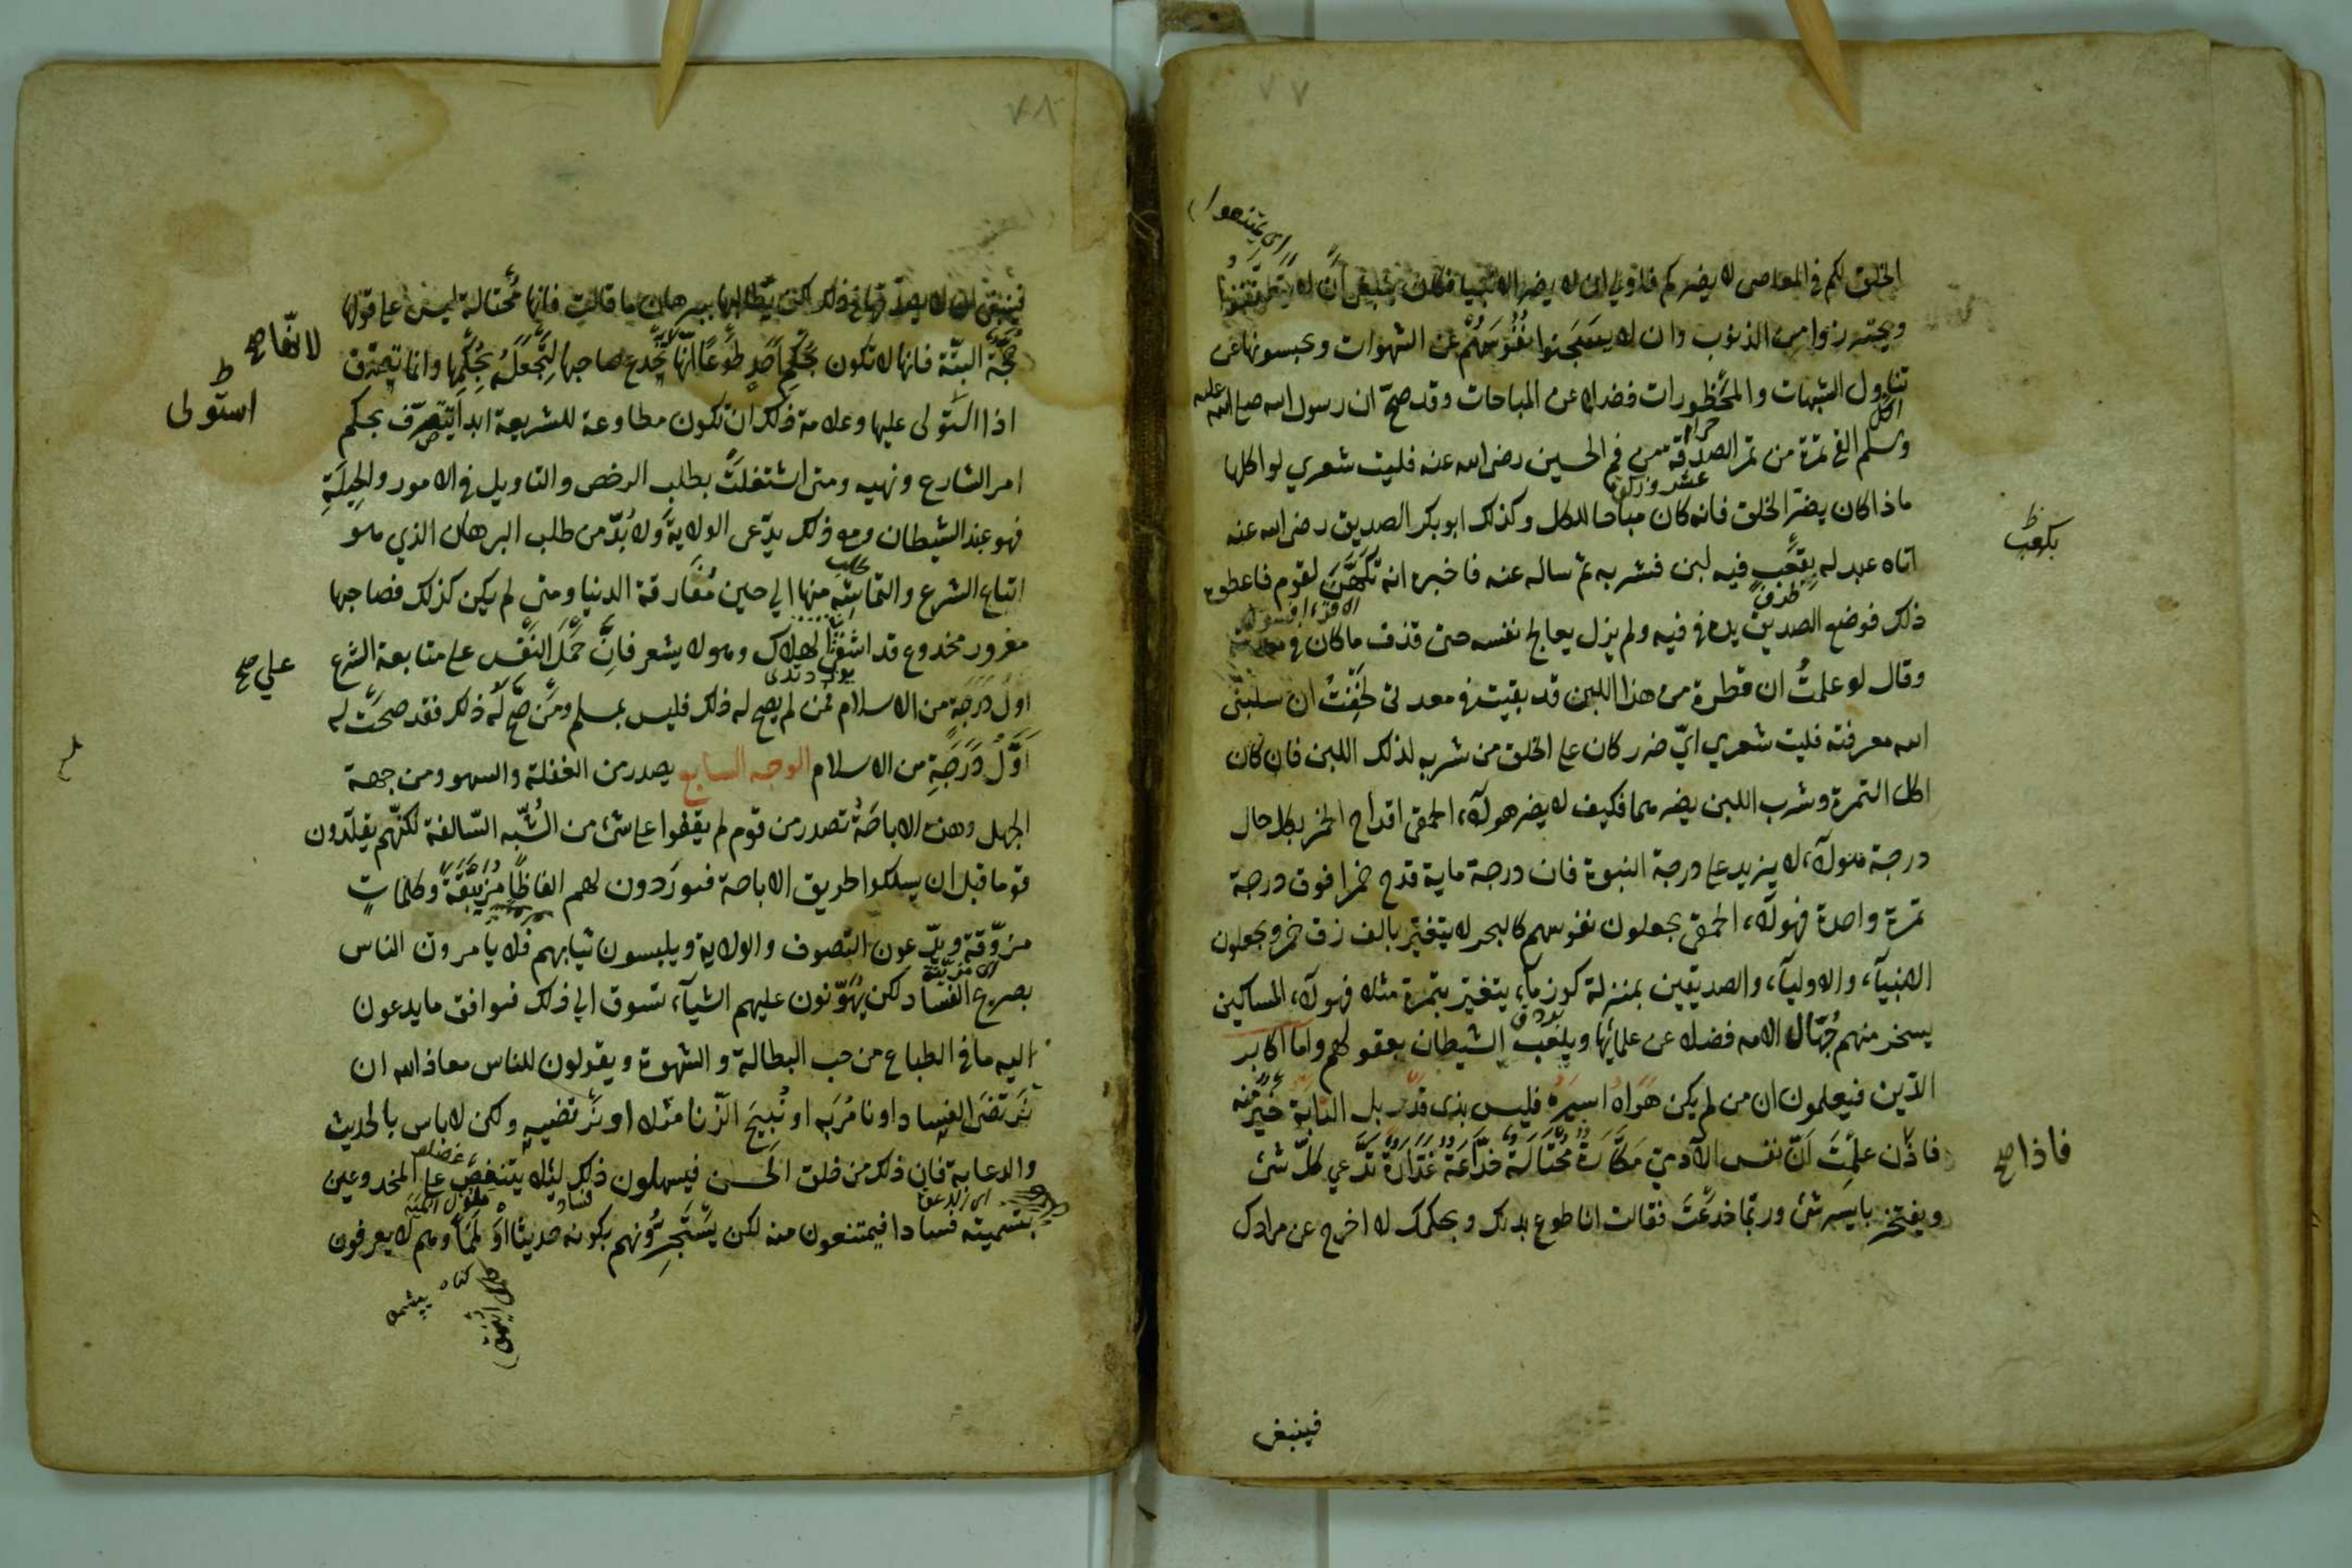 ٧٧
اى يمتنعوا
الخلق لكم فى المعاصى لا يضركم فلاولى ان لا يضر الانبيا فكان ينبغى ان لا
ويحترزوا من الذنوب وان لا يسجنوا نفوسهم عن الشهوات ويحبسونها عن
تناول الشبهات والمحظورات فضلا عن المباحات وقد صحّ ان رسول الله صلى الله عليه
وسلم القى تمرة من تمر الصدقة من فم الحسين رضى الله عنه فليت شعري لو اكلها
ماذا كان يضرّ الخلق فانه كان مباحا للكل وكذلك ابوبكر الصديق رضى الله عنه
اتاه عبد له بقعب فيه لبن فشربه ثم ساله عنه فاخبره انه تكهّن لقوم فاعطوه
بكعب
ظرف
ذلك فوضع الصديق يده فى فيه ولم يزل يعالج نفسه حتى قذف ما كان فى معدته
وقال لو علمتُ ان قطرة من هذا اللبن قد بقيت فى معدتى لخفتُ ان سلبنى
الله معرفته فليت شعري ايّ ضرر كان على الخلق من شربه لذلك اللبن فان كان
اكل التمرة وشرب اللبن يضرهما فكيف لا يضر هولآء الحمقى اقداح الخمر بكل حال
درجة هولآء لا يزيد على درجة النبوة فان درجة ماية قدح خمرا فوق درجة
تمرة واحدة فهولآء الحمقى يجعلون نفوسهم كالبحر لا يتغيّر بالف زق خمر ويجعلون
الانبيآء والاوليآء والصديقين بمنزلة كوز مآء يتغيّر بتمرة مثلا فهولآء المساكين
يسخر منهم جُهّال الامه فضلا عن علمائها ويلعب الشيطان بعقولهم واما اكابر
الدّين فيعلمون ان من لم يكن هَوَاهُ اسيرَهُ فليس بذى قدر بل الدّابة خيرٌ منه
فاذن علمتَ اَنّ نفس الآدميّ مَكّارَةٌ مُحْتَالَةٌ خدّاعَةٌ غَدّارَةٌ تدّعي كلّ شئ
فاذا صح
ويفتخر بايسر شئ وربّما خدعت فقالت انا طوع يدك وبحكمك لا اخرج عن مرادك
فينبغى
٧٨
فينبغى ان لا يصدّقها فى ذلك لكن يطالبها ببرهان ما قالت فانها مُحتالة ليس على قولها
حُجّة البتّة فانها لا تكون بحُكم احدٍ طَوْعًا انّها تخدع صاحبها لتجعلهُ بحُكمها وانما تصدّق
لانّها صح
اذا استولى عليها وعلامة ذلك ان تكون مطاوعة للشريعة ابدا يتصرّف بحكم
استولى
امر الشارع ونهيه ومتى اشتغلتْ بطلب الرخص والتاويل فى الامور والحيلةِ
فهو عبد الشيطان ومع ذلك يدّعى الولاية ولا بُدّ من طلب البرهان الذي هو
اتباع الشرع والتماسه منها الي حين مُفارقة الدنيا ومتى لم يكن كذلك فصاحبها
طلب
مغرور مخدوع قد اشفى الهلاك وهو لا يشعر فانّ حَمْلَ النفس على متابعة الشرع
علي صح
اوّل دَرَجةٍ من الاسلام فمن لم يصح له ذلك فليس بمسلم ومن صحّ له ذلك فقد صحّت له
اَوّلُ دَرَجَةٍ من الاسلام الوجه السابع يصدر من الغفلة والسهو ومن جهة
الجهل وهذه الاباحَةُ تصدر من قوم لم يقفوا على شئ من الشُّبَه السّالفة لكنّهم يقلّدون
قوما قبل ان يسلكوا طريق الاباحة فيورَدون لهم الفاظًا مُزَيَّنَةً وكلماتٍ
مزوّقة ويدّعون التصوف والولاية ويلبسون ثيابهم فلا يامرون الناس
اى مزيّنة
بصريح الفساد لكن يُهَوّنون عليهم اشيآء تسوق الي ذلك فيوافق ما يدعون
اليه ما فى الطباع من حب البطالة والشهوة ويقولون للناس معاذ الله ان
نَرتضى الفساد او نامُرَ به او نُبيحَ الزّنا مثلا او نرتضيه ولكن لا باس بالحديث
والدعابة فان ذلك من خلق الحسن فيسهلون ذلك ليلا يتنغص على المخدوعين
بتسميته فسادا فيمتنعون منه لكن يَستَجِرّونهم بكونه حديثا او لَمَمًا وهم لا يعرفون
كناه